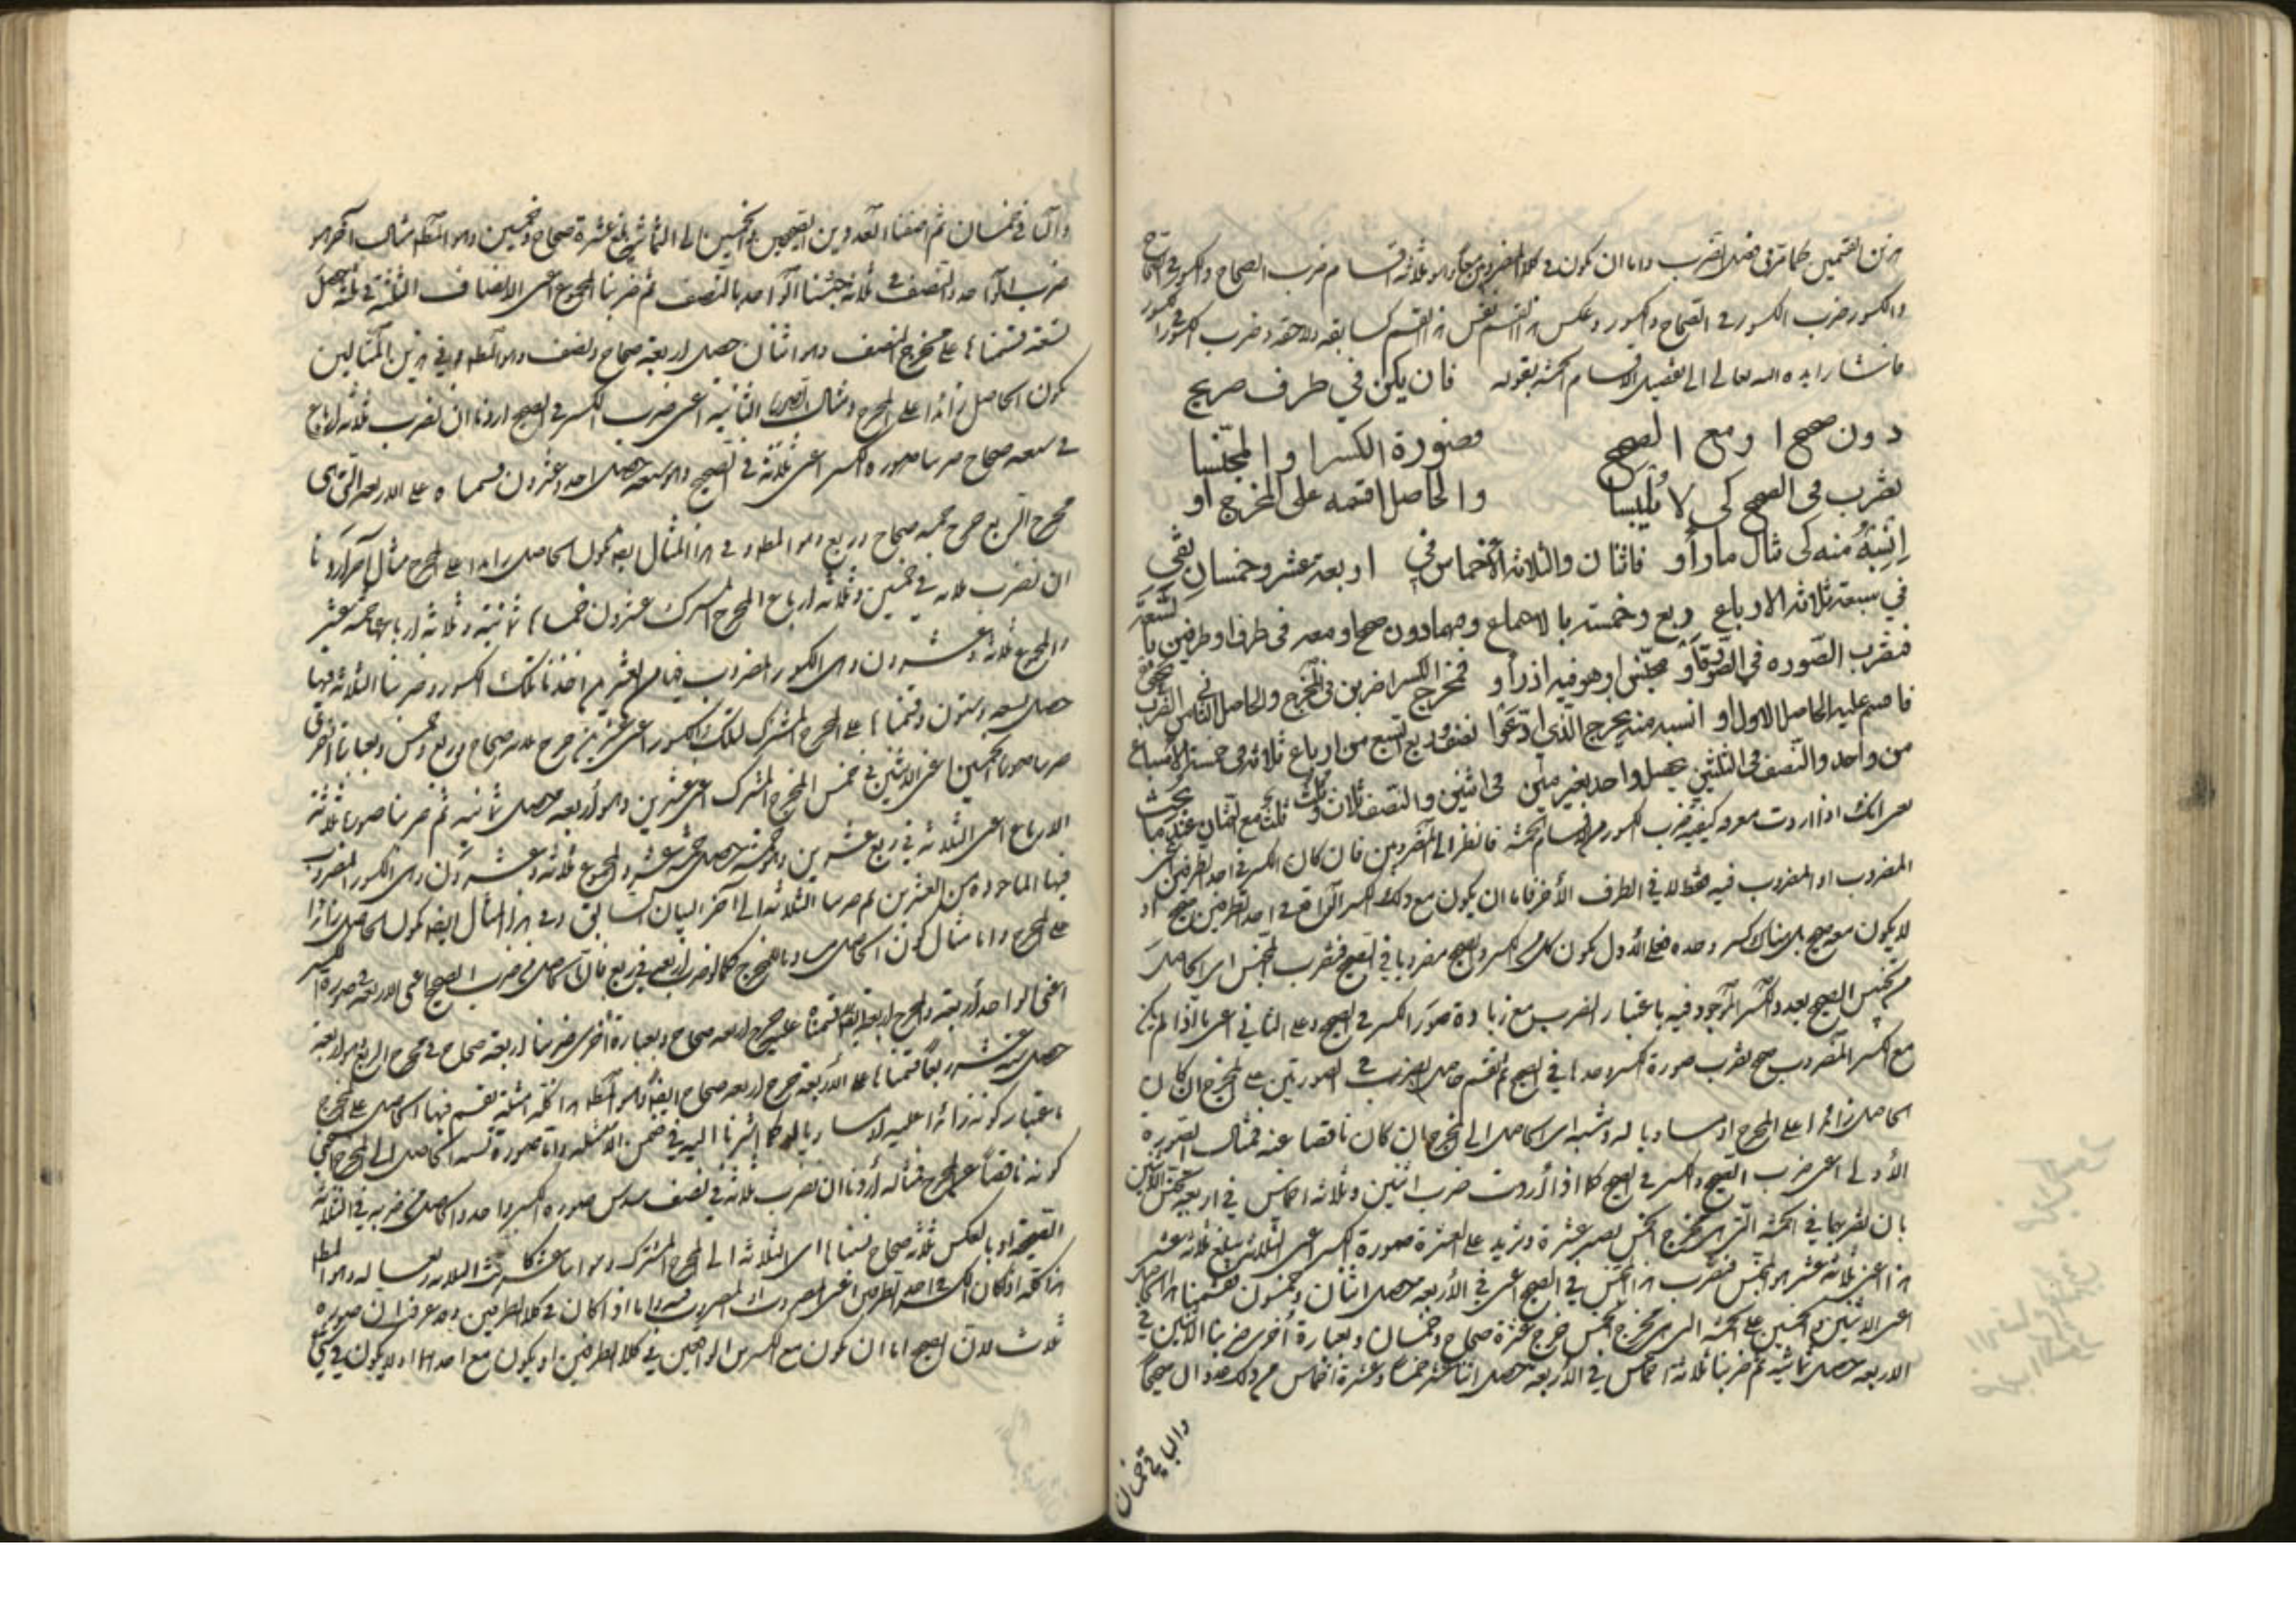 هذين القسمين كما مر في فصل الضرب واما ان يكون في كلا المضروبين معا وهو ثلاثة اقسام ضرب الصحاح والكسور في الصحاح
والكسور وضرب الكسور في الصحاح والكسور وعكس هذا القسم نفس هذا القسم كسابقه ولاحقه وضرب الكسور في الكسور
فاشار ايده الله تعالى الى تفصيل الاقسام الخمسة بقوله فان يكن في طرف صريح
دون صحيح او مع الصحيح فصورة الكسر او المجنسا
تضرب في الصحيح كي لا يلبسا والحاصل اقسمه على المخرج او
انسبه منه كي مثال ما رأوا فاثنان والثلاثة الاخماس في اربعة عشر وخمسان يقي
في سبعة ثلاثة الارباع وربع وخمسة بالاهماع ومهما دون صحيح او معه في طرف او طرفين يا
فتضرب الصورة في الصورة او مجنس او هو فيه اذ رأوا فمخرج الكسر اضربن في المخرج والحاصل الثاني
فاقسم عليه الحاصل الاول او انسبه منه يخرج الذي ادعوا نصف وربع التسع من ارباع ثلاثة في خمسة الاسباع
من واحد والنصف في الثلثين يحصل واحد بغير مين في اثنين والنصف ثلاث وثلث
انك اذا اردت معرفة كيفية ضرب الكسور من الاقسام الخمسة فانظر الى المضروبين فان كان الكسر في احد الطرفين
المضروب او المضروب فيه فقط لا في الطرف الاخر فاما ان يكون مع ذلك الكسر الواقع في احد الطرفين صحيح او
لا يكون معه صحيح بل هناك كسر وحده فعلى الاول يكون كل من الكسر والصحيح مضروبا في الصحيح فتضرب المجنس اي الحاصل
من تجنيس الصحيح بعدد الكسر الموجود فيه باعتبار الضرب مع زيادة صورة الكسر في الصحيح وعلى الثاني اعني ما اذا لم يكن
مع الكسر المضروب صحيح تضرب صورة الكسر وحدها في الصحيح ثم اقسم حاصل الضرب في الصورتين على المخرج ان كان
الحاصل زائدا على المخرج او مساويا له ونسبة اي الحاصل الى المخرج ان كان ناقصا عنه فمثال الصورة
الاولى اعني ضرب الصحيح والكسر في الصحيح كما اذا اردت ضرب اثنين وثلاثة اخماس في اربعة تجنس الاثنين
بان تضربهما في الخمسة التي هي مخرج الخمس تصير عشرة وتزيد على العشرة صورة الكسر اعني الثلاثة يبلغ ثلاثة عشر
هذا اعني ثلاثة عشر هو المجنس فتضرب هذا المجنس في الصحيح اعني في الاربعة يحصل اثنان وخمسون قسمنا هذا الحاصل
اعني الاثنين والخمسين على الخمسة التي هي مخرج الخمس خرج عشرة صحاح وخمسان وبعبارة اخرى ضربنا الاثنين في
الاربعة حصل ثمانية ثم ضربنا ثلاثة اخماس في الاربعة حصل اثنا عشر خمسا وعشرة اخماس من ذلك
والباقي خمسان
والباقي خمسان ثم اضفنا العددين الصحيحين والخمسين الى الثمانية بلغ عشرة صحاح وخمسين وهو المطلوب مثال آخر هو
ضرب الواحد والنصف في ثلاثة جنسنا الواحد بالنصف ثم ضربنا المجموع اعني الانصاف الثلثة في ثلثة حصل
تسعة قسمناها على مخرج النصف وهو اثنان حصل اربعة صحاح ونصف وهو المطلوب وفي هذين المثالين
يكون الحاصل زائدا على المخرج ومثال الصورة الثانية اعني ضرب الكسر في الصحيح اردنا ان نضرب ثلثة ارباع
في سبعة صحاح ضربنا صورة الكسر اعني ثلثة في الصحيح وهو سبعة حصل احد وعشرون قسمناه على الاربعة التي هي
مخرج الربع خرج خمسة صحاح وربع وهو المطلوب وفي هذا المثال ايضا يكون الحاصل زائدا على المخرج مثال آخر اردنا
ان نضرب ثلاثة في خمسين وثلاثة ارباع المخرج المشترك عشرون خمساها ثمانية وثلاثة ارباعها خمسة عشر
والمجموع ثلاثة وعشرون وهي الكسور المضروب فيها من العشرين اخذنا تلك الكسور وضربنا الثلاثة فيها
حصل تسعة وستون وقسمناها على المخرج المشترك لتلك الكسور اعني عشرين خرج ثلاثة صحاح وربع وخمس وبعبارة اخرى
ضربنا صورة الخمسين اعني الاثنين في خمس المخرج المشترك اعني عشرين وهو اربعة حصل ثمانية ثم ضربنا صورة ثلاثة
الارباع اعني الثلاثة في ربع عشرين وهو خمسة حصل خمسة عشر والمجموع ثلاثة وعشرون وهي الكسور المضروب
فيها الماخوذة من العشرين ثم ضربنا الثلاثة الى آخر البيان السابق وفي هذا المثال ايضا يكون الحاصل زائدا
على المخرج واما مثال كون الحاصل مساويا للمخرج كما لو ضرب اربعة في ربع فان الحاصل من ضرب الصحيح اعني الاربعة في صورة الكسر
اعني الواحد اربعة والمخرج اربعة ايضا
حصل ستة عشر ربعا قسمناها على الاربعة خرج اربعة صحاح ايضا وهو المطلوب هذا كله امثلة تقسم فيها الحاصل على المخرج
باعتبار كونه زائدا عليه او مساويا له كما اشرنا اليه في ضمن الامثلة واما صورة نسبة الحاصل الى المخرج اعني
كونه ناقصا عن المخرج فمثاله اردنا ان نضرب ثلاثة في نصف سدس صورة الكسر واحد والحاصل من ضربه في الثلاثة
الصحيحة او بالعكس ثلاثة صحاح نسبناها اي الثلاثة الى المخرج المشترك وهو اثنا عشر
هذا كله اذا كان الكسر في احد الطرفين اعني المضروب او المضروب فيه واما اذا كان في كلا الطرفين
ثلاث لان الصحيح اما ان يكون مع الكسرين الواقعين في كلا الطرفين او يكون مع احدهما او لا يكون في شيء